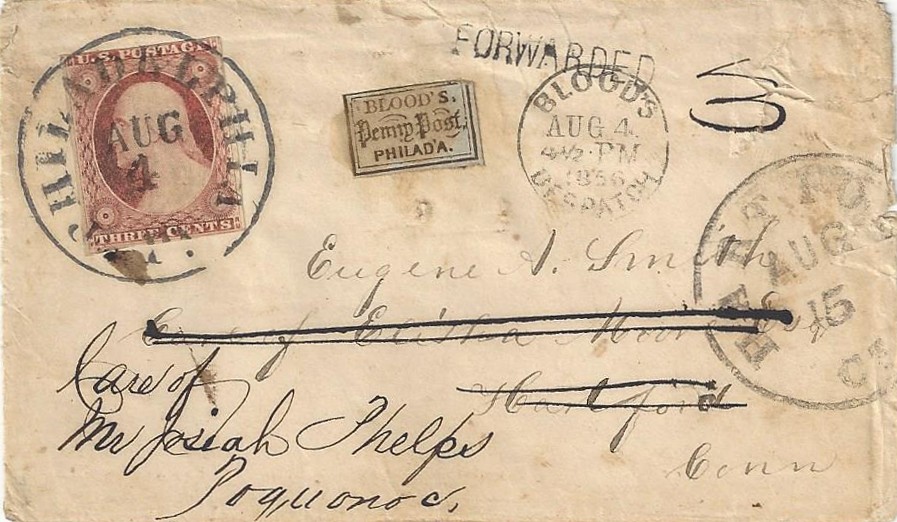 U.S. POSTAGE
THREE CENTS
PHILADELPHIA
AUG
4
BLOOD'S.
Penny Post.
PHILAD'A.
FORWARDED
BLOOD'S
AUG. 4.
4½ PM
1856
DESPATCH
AUG
15
Eugene A. Smith
Care of Elisha
Hartford
Conn
Care of
Mr Josiah Phelps
Poquonoc.